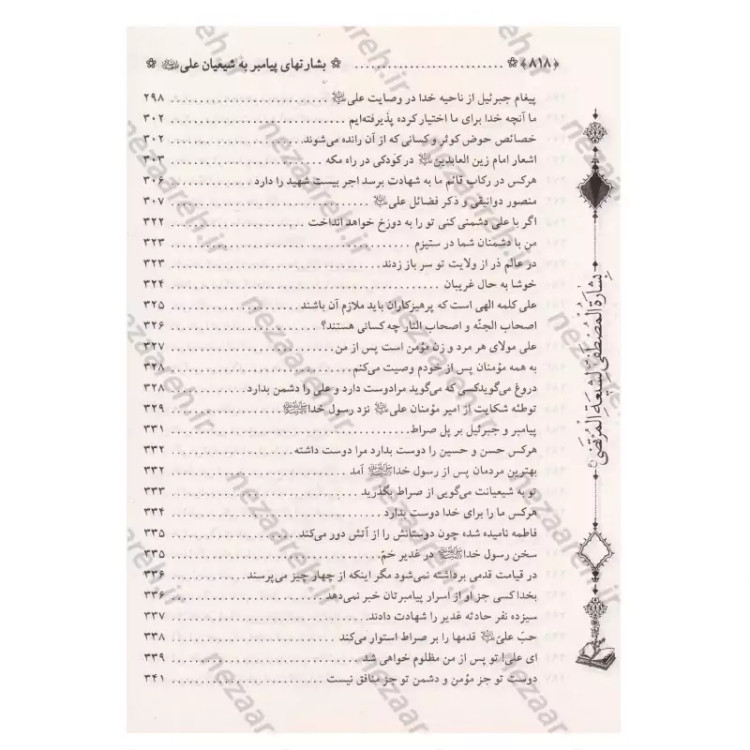 ﴿۸۱۸﴾ ............................ بشارتهای پیامبر به شیعیان علی
پیغام جبرئیل از ناحیه خدا در وصایت علی ............................ ۲۹۸
ما آنچه خدا برای ما اختیار کرده پذیرفته‌ایم ............................ ۳۰۲
خصائص حوض کوثر و کسانی که از آن رانده می‌شوند ............................ ۳۰۲
اشعار امام زین العابدین در کودکی در راه مکه ............................ ۳۰۳
هرکس در رکاب قائم ما به شهادت برسد اجر بیست شهید را دارد ............................ ۳۰۶
منصور دوانیقی و ذکر فضائل علی ............................ ۳۰۷
اگر با علی دشمنی کنی تو را به دوزخ خواهد انداخت ............................ ۳۲۲
من با دشمنان شما در ستیزم ............................ ۳۲۳
در عالم ذر از ولایت تو سر باز زدند ............................ ۳۲۳
خوشا به حال غریبان ............................ ۳۲۴
علی کلمه الهی است که پرهیزکاران باید ملازم آن باشند ............................ ۳۲۵
اصحاب الجنّه و اصحاب النار چه کسانی هستند؟ ............................ ۳۲۶
علی مولای هر مرد و زن مؤمن است پس از من ............................ ۳۲۷
به همه مؤمنان پس از خودم وصیت می‌کنم ............................ ۳۲۸
دروغ می‌گویدکسی که می‌گوید مرادوست دارد و علی را دشمن بدارد ............................ ۳۲۸
توطئه شکایت از امیر مؤمنان علی نزد رسول خدا ............................ ۳۲۹
پیامبر و جبرئیل بر پل صراط ............................ ۳۳۱
هرکس حسن و حسین را دوست بدارد مرا دوست داشته ............................ ۳۳۲
بهترین مردمان پس از رسول خدا آمد ............................ ۳۳۲
تو به شیعیانت می‌گویی از صراط بگذرید ............................ ۳۳۳
هرکس ما را برای خدا دوست بدارد ............................ ۳۳۴
فاطمه نامیده شده چون دوستانش را از آتش دور می‌کند ............................ ۳۳۵
سخن رسول خدا در غدیر خمّ ............................ ۳۳۵
در قیامت قدمی برداشته نمی‌شود مگر اینکه از چهار چیز می‌پرسند ............................ ۳۳۶
بخدا کسی جز او از اسرار پیامبرتان خبر نمی‌دهد ............................ ۳۳۶
سیزده نفر حادثه غدیر را شهادت دادند ............................ ۳۳۷
حبّ علی قدمها را بر صراط استوار می‌کند ............................ ۳۳۸
ای علی! تو پس از من مظلوم خواهی شد ............................ ۳۳۹
دوست تو جز مؤمن و دشمن تو جز منافق نیست ............................ ۳۴۱
بِشارَةُ المُصْطَفىٰ لِشیعَةِ المُرْتَضىٰ
nezaareh.ir